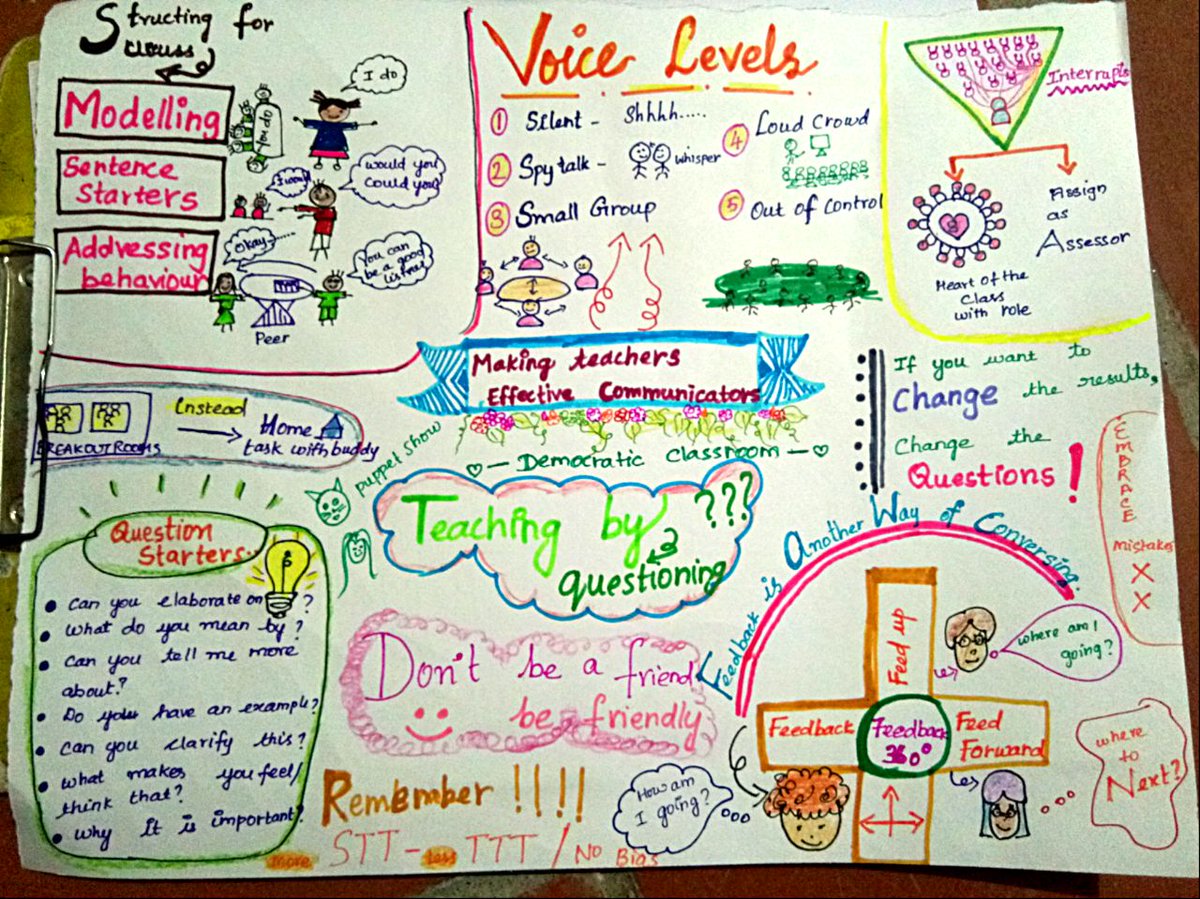 Structing for
Modelling
I do
You do
Sentence
Starters
I would
would you
could you
Addressing
behaviour
Okay......
You can
be a good
Peer
Voice Levels
1 Silent - Shhhh.....
2 Spy talk - whisper
3 Small Group
4 Loud Crowd
5 Out of Control
Interrupts
Heart of the
Class
with role
Assign
as
Assessor
Making teachers
Effective Communicators
Democratic Classroom
BREAKOUT ROOMS
Instead
Home
task with buddy
puppet show
Teaching by ???
questioning
If you want to
Change the results,
Change the
Questions!
EMBRACE
Mistakes
X
X
Question
Starters..
• Can you elaborate on ?
• What do you mean by ?
• Can you tell me more
about?
• Do you have an example?
• Can you clarify this?
• What makes you feel/
think that?
• Why it is important?
Don't be a friend
be friendly
Remember !!!!
more STT - Less TTT / No Bias
Feedback is Another Way of Conversing.
Feed up
where am I
going?
Feedback
Feedback
360°
Feed
Forward
How am
I going?
where
to
Next?